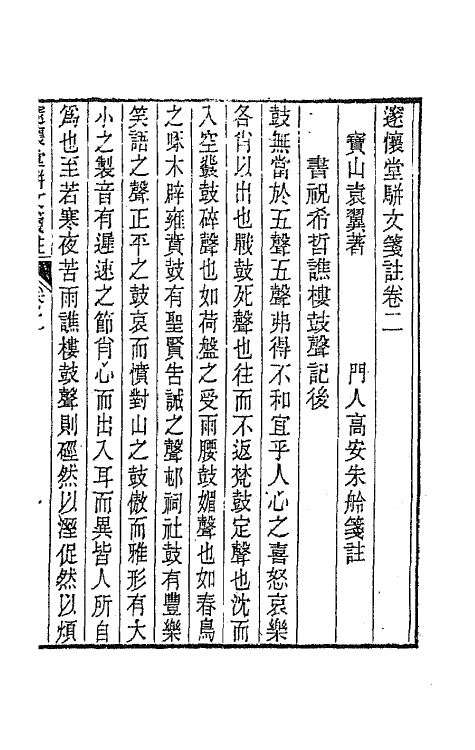 邃懷堂駢文箋註卷二
寶山袁翼著　　門人高安朱舲箋註
書祝希哲譙樓鼓聲記後
鼓無當於五聲五聲弗得不和宜乎人心之喜怒哀樂
各肖以出也戰鼓死聲也往而不返梵鼓定聲也沈而
入空羯鼓碎聲也如荷盤之受雨腰鼓媚聲也如春鳥
之啄木辟雍賁鼓有聖賢告誡之聲邨祠社鼓有豐樂
笑語之聲正平之鼓哀而憤對山之鼓傲而雅形有大
小之製音有遲速之節肖心而出入耳而異皆人所自
爲也至若寒夜苦雨譙樓鼓聲則硜然以溼促然以煩
邃懷堂駢文箋註